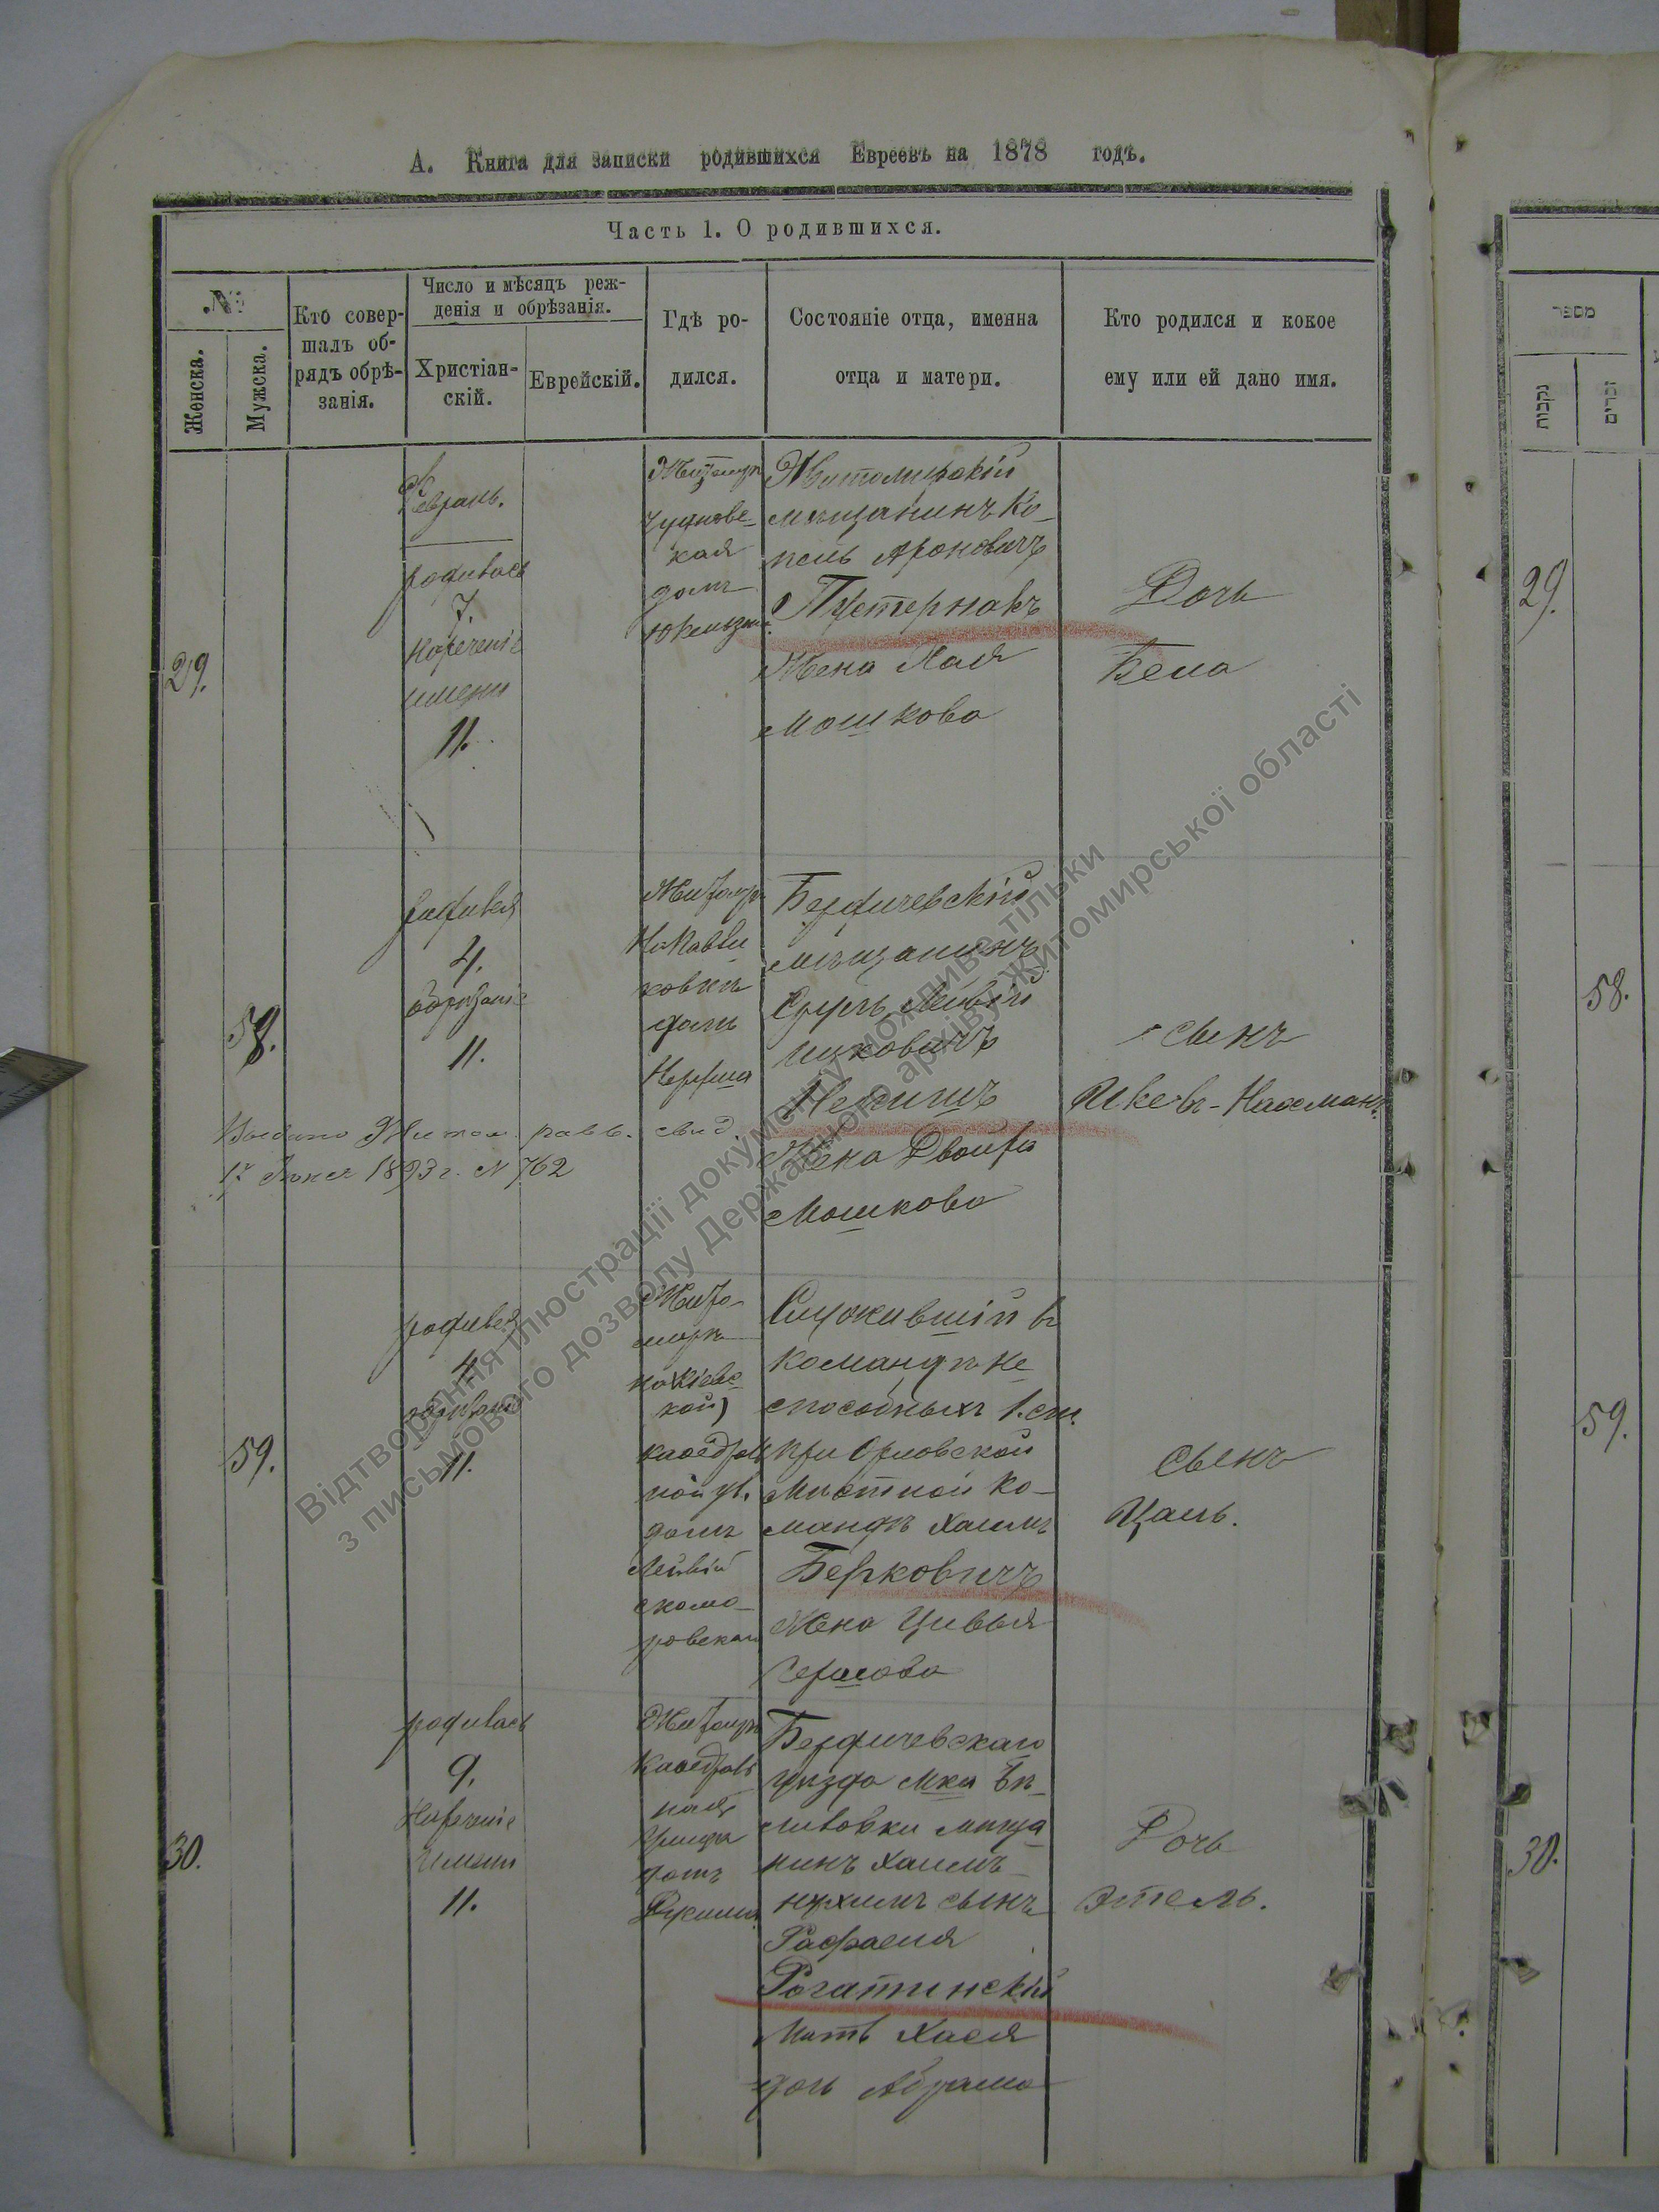 А. Книга для записки родившихся Евреевъ на 1878 годъ.
Часть 1. О родившихся.
№
Женска.
Мужска.
Кто совер-
шалъ об-
рядъ обрѣ-
занія.
Число и мѣсяцъ реж-
денія и обрѣзанія.
Христіан-
скій.
Еврейскій.
Гдѣ ро-
дился.
Состояніе отца, именна
отца и матери.
Кто родился и кокое
ему или ей дано имя.
29.
родилась
7.
нареченіе
имени
11.
кая
домъ
Житомирскій
мѣщанинъ Ко-
пель Ароновичъ
Пустернакъ
Жена Лая
Мошкова
Дочь
Бела
58.
родился
4.
обрѣзаніе
11.
домъ
Бердичевскій
мѣщанинъ
Ицковичъ
Жена Двойра
Мошкова
сынъ
Икевъ-Нахманъ
Выдано Житом. равв. свид.
1893 г. N 762
59.
родился
4.
обрѣзаніе
11.
Жито-
миръ
на Кіевс-
кой
домъ
Служившій въ
командѣ не
способныхъ 1. ст.
при Орловской
Мѣстной Ко-
мандѣ Хаимъ
Берковичъ
Жена Цивья
Гершова
сынъ
Цаль.
30.
родилась
9.
Нареченіе
Имени
11.
Житомиръ
Кафедраль
ная
улица
домъ
Бердичевскаго
уѣзда Мка Бѣ-
лиловки мѣща
нинъ Хаимъ
Нухимъ сынъ
Рафаеля
Рогатинскій
Мать Хася
дочь Абрама
Дочь
Этель.
מספר
נקבות
זכרים
29.
58.
59.
30.
Відтворення ілюстрації документу можливе тільки
з письмового дозволу Державного архіву Житомирської області